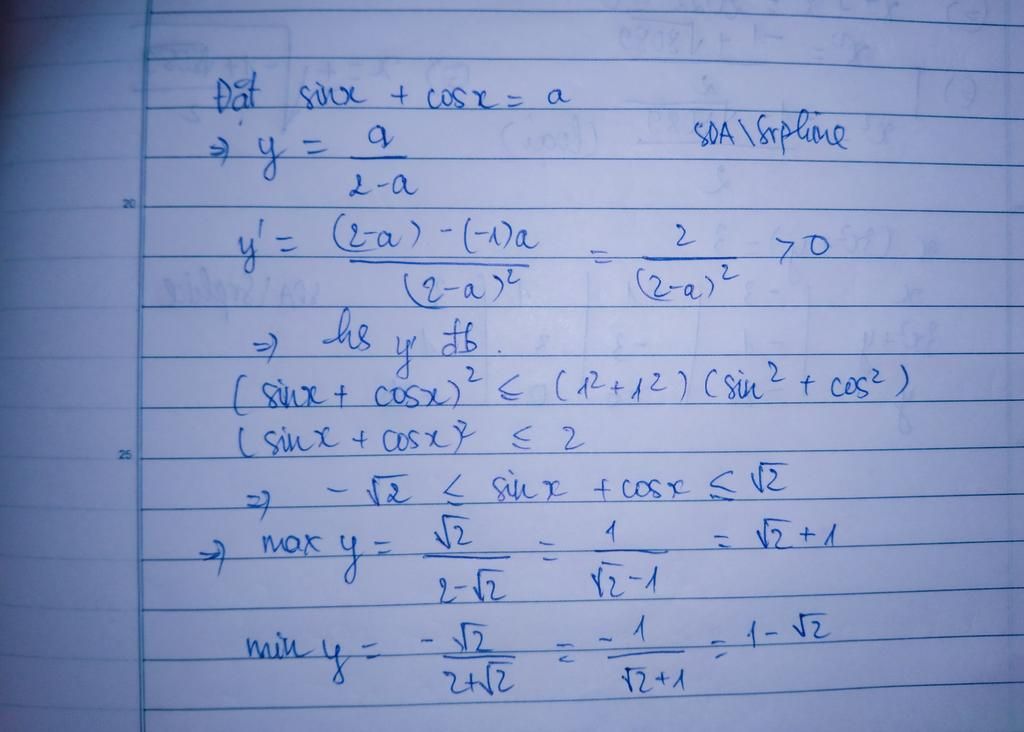 Đặt sinx + cosx = a
⇒ y = a/(2-a)
SDA\Srphine
20
y' = ((2-a) - (-1)a)/(2-a)² = 2/(2-a)² > 0
⇒ hs y đb.
(sinx + cosx)² ≤ (1²+1²)(sin² + cos²)
(sinx + cosx)² ≤ 2
25
⇒ -√2 ≤ sinx + cosx ≤ √2
⇒ max y = √2/(2-√2) = 1/(√2-1) = √2+1
min y = -√2/(2+√2) = -1/(√2+1) = 1-√2